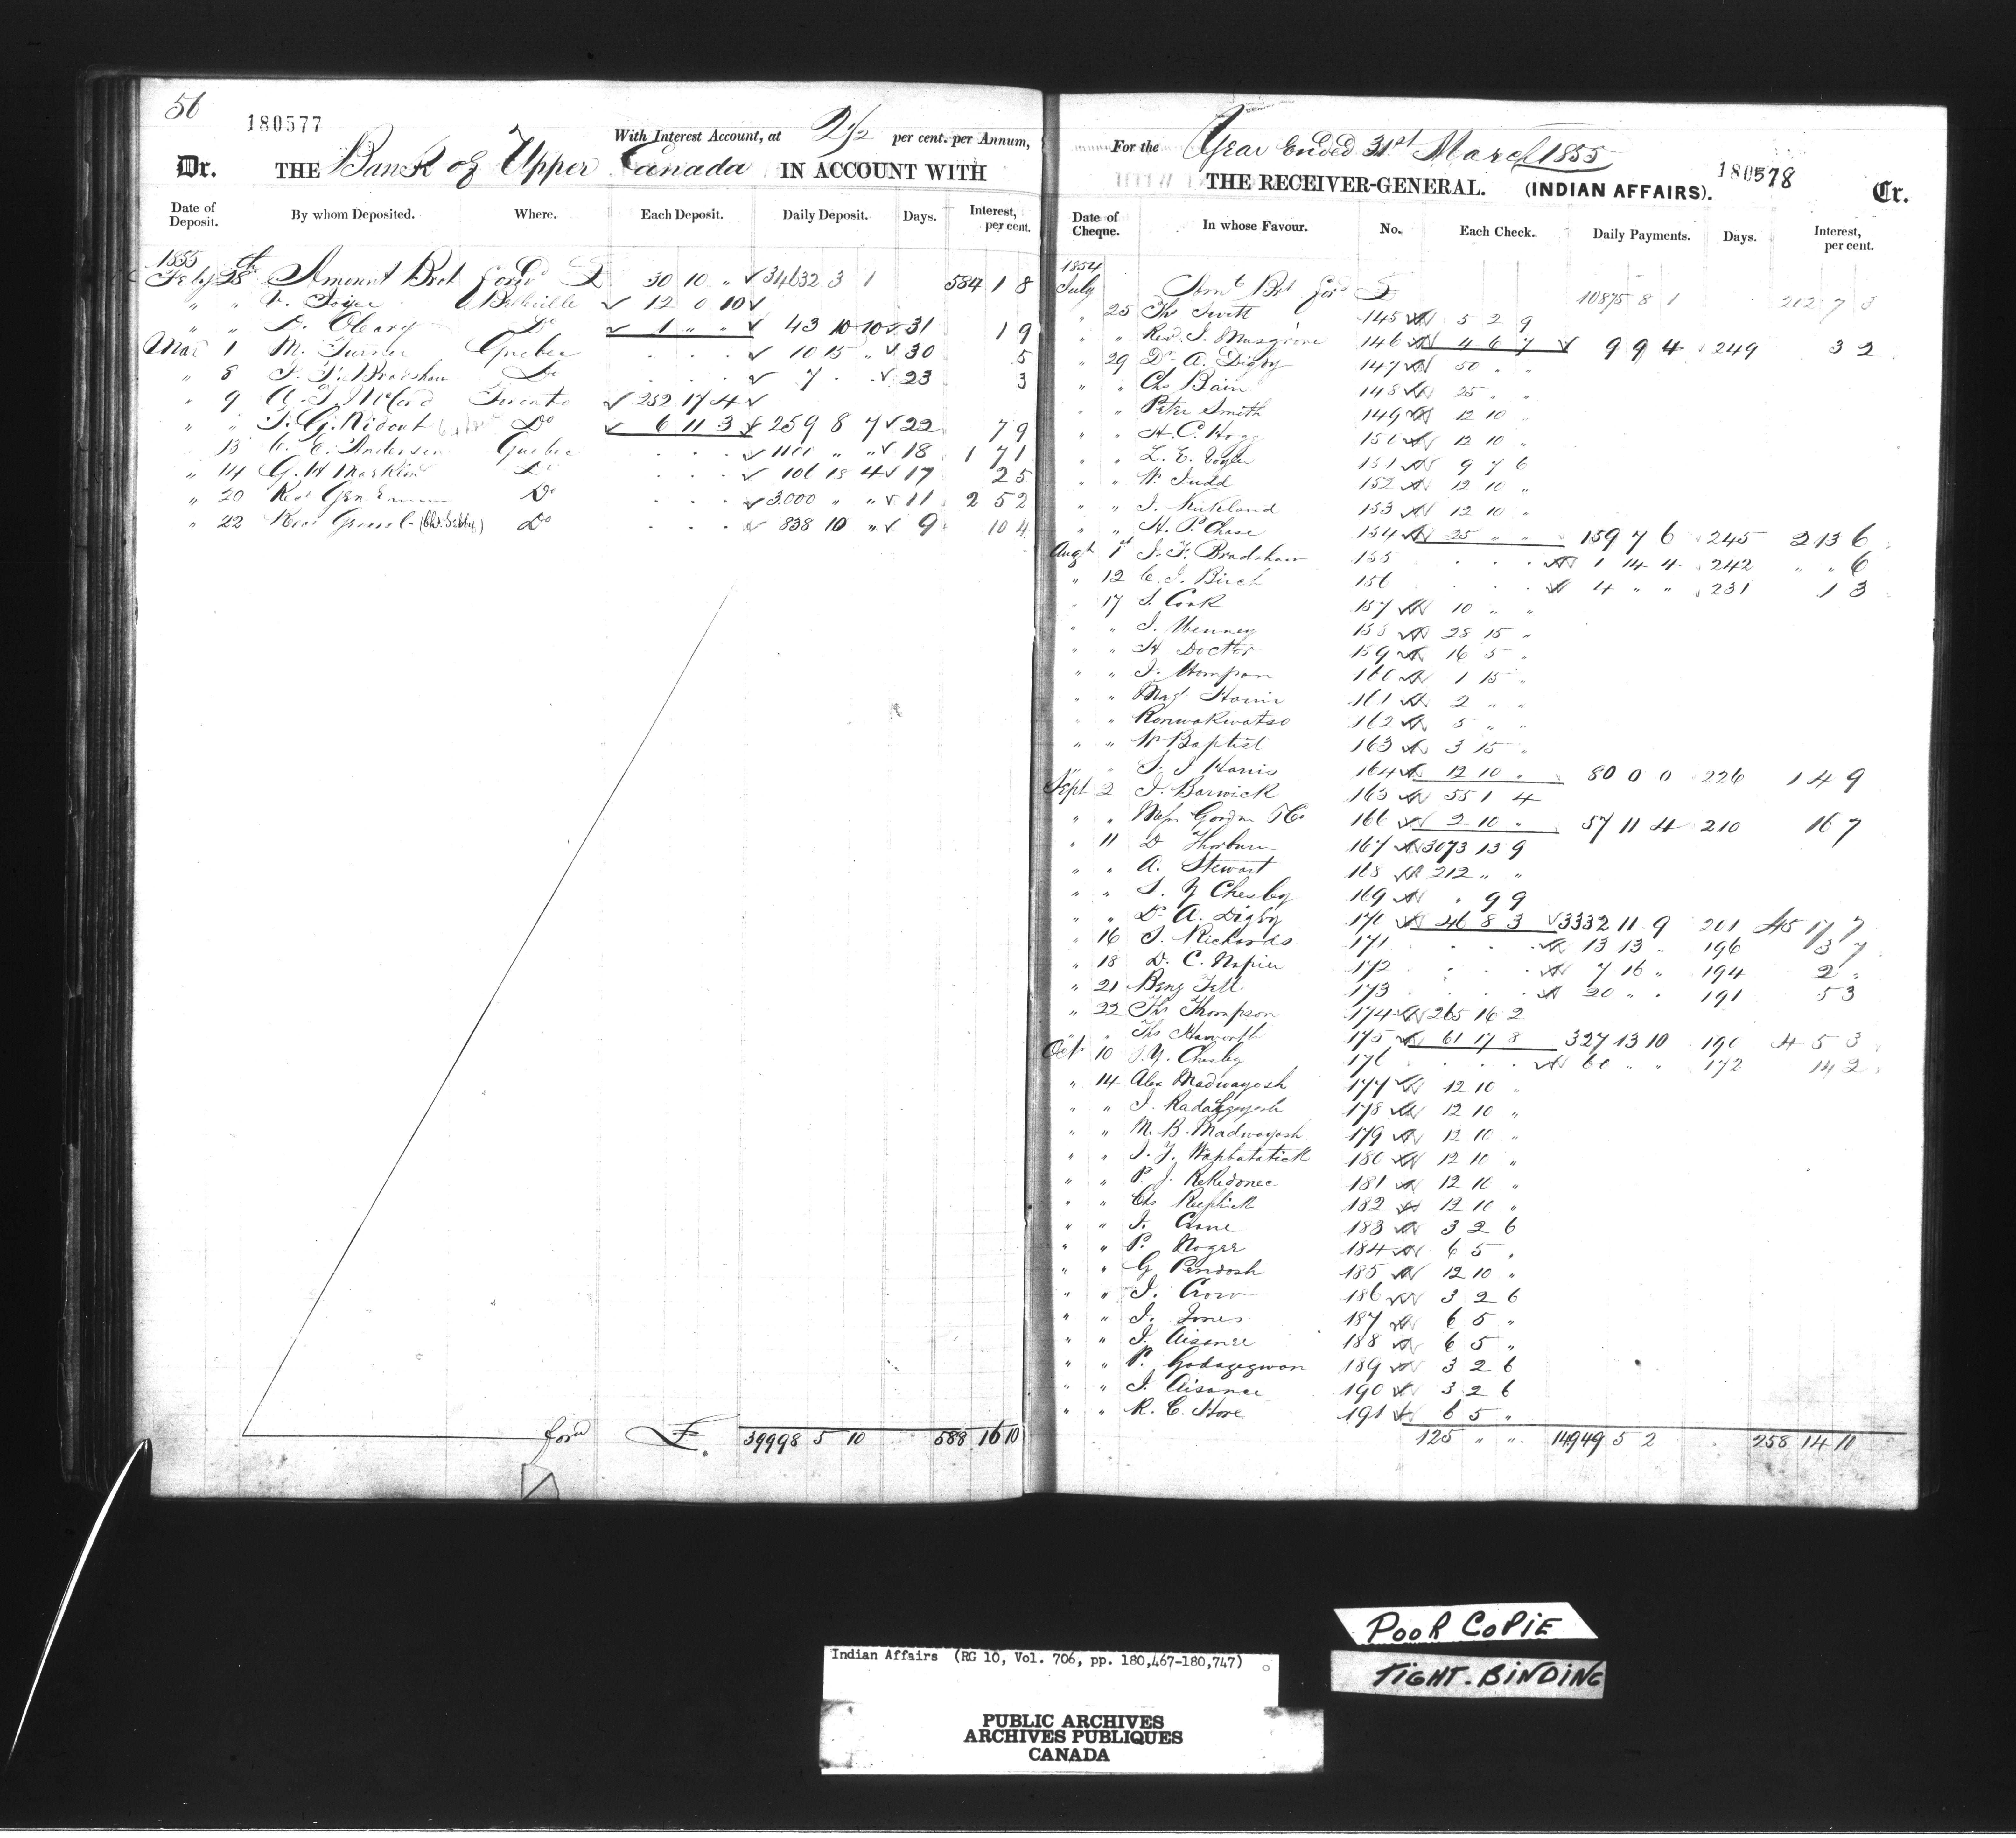 56
180577
With Interest Account, at 2 1/2 per cent. per Annum,
Dr. THE Bank of Upper Canada IN ACCOUNT WITH
Date of Deposit. By whom Deposited. Where. Each Deposit. Daily Deposit. Days. Interest, per cent.
1855
Feby 28 Amount Brot Forwd £ 30 10 " 34632 3 1 584 1 8
" " Belleville 12 0 10
" " Do 1 " " 43 10 10 31 1 9
Mar 1 M. Turner Quebec 10 15 " 30 5
" 8 J. F. Bradshaw Do 7 23 3
" 9 A. T. McCord Toronto 252 17 4
" " T. G. Ridout Do 6 11 3 259 8 7 22 7 9
" 13 C. E. Anderson Quebec 1100 " " 18 1 7 1
" 14 Do 106 18 4 17 2 5
" 20 Do 3000 " " 11 2 5 2
" 22 Do 838 10 " 9 10 4
forwd £. 39998 5 10 588 16 10
For the Year Ended 31st March 1855
THE RECEIVER-GENERAL. (INDIAN AFFAIRS). 180578 Cr.
Date of Cheque. In whose Favour. No. Each Check. Daily Payments. Days. Interest, per cent.
1854
July Amt Brt Ford £ 10875 8 1 212 7 3
" 25 Ths 145 5 2 9
" " Revd. J. Musgrove 146 4 6 7 9 9 4 249 3 2
" 29 Dr. A. Digby 147 50 " "
" " Chs Bain 148 25 " "
" " Peter Smith 149 12 10 "
" " H. C. Hogg 150 12 10 "
" " 151 9 7 6
" " W. Judd 152 12 10 "
" " J. Kirkland 153 12 10 "
" " H. P. Chase 154 25 " " 159 7 6 245 2 13 6
Augt 1st J. F. Bradshaw 155 1 14 4 242 " " 6
" 12 C. J. Birch 156 4 " " 231 1 3
" 17 J. Cook 157 10 " "
" " 158 28 15 "
" " H Doctor 159 16 5 "
" " J. Thompson 160 1 15 "
" " 161 2 " "
" " Ronwakwatso 162 5 " "
" " W Baptist 163 3 15 "
" " Harris 164 12 10 " 80 0 0 226 1 4 9
Sept 2 J. Barwick 165 55 1 4
" " Gordon & Co 166 2 10 " 57 11 4 210 16 7
" 11 D Thorburn 167 3073 13 9
" " A. Stewart 168 212 " "
" " S. Y Chesley 169 " 9 9
" " Dr A. Digby 170 46 8 3 3332 11 9 201 45 17 7
" 16 J. Richards 171 13 13 " 196 3 7
" 18 D. C. Napier 172 7 16 " 194 2 "
" 21 Benj Tett 173 20 " " 191 5 3
" 22 Ths Thompson 174 265 16 2
" " Ths Haworth 175 61 17 8 327 13 10 190 4 5 3
Oct 10 S. Y. Chesley 176 60 " " 172 14 2
" 14 Alex Madwayosh 177 12 10 "
" " 178 12 10 "
" " M. B. Madwayosh 179 12 10 "
" " 180 12 10 "
" " P. J. Kekedonce 181 12 10 "
" " Chs Keeshick 182 12 10 "
" " J. Crane 183 3 2 6
" " P. Nogee 184 6 5 "
" " G Pendosh 185 12 10 "
" " J. Crow 186 3 2 6
" " J. Jones 187 6 5 "
" " J. Aisance 188 6 5 "
" " P. Gadagegwon 189 3 2 6
" " J. Aisance 190 3 2 6
" " R. C. Hore 191 6 5 "
125 " " 14949 5 2 258 14 10
POOR COPIE
TIGHT-BINDING
Indian Affairs (RG 10, Vol. 706, pp. 180,467-180,747)
PUBLIC ARCHIVES
ARCHIVES PUBLIQUES
CANADA